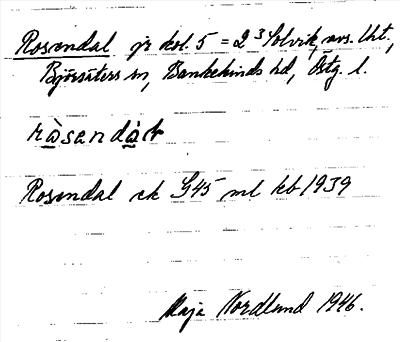 Rosendal gr kol. 5 = 2³ Solvik, avs. Uht,
Björsäters sn, Bankekinds hd, Östg. l.
ràsendàɫ
Rosendal ek G45 ml kb 1939
Maja Nordlund 1946.